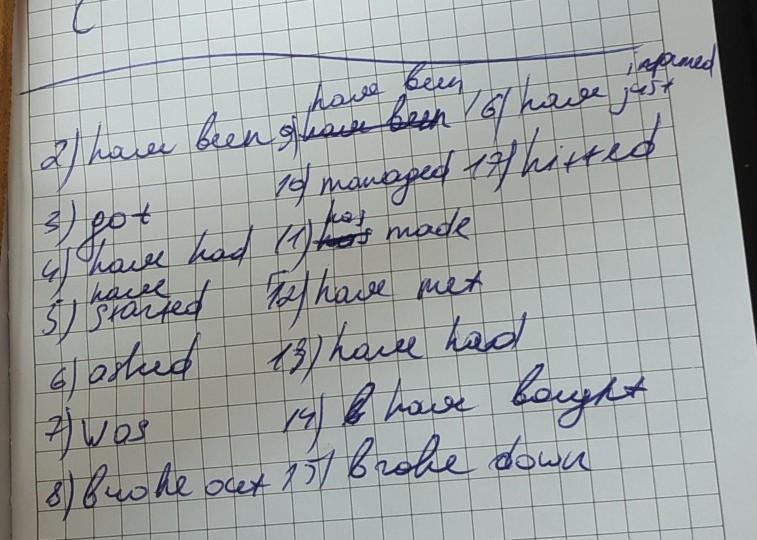 2) have been
3) got
4) have had
5) have started
6) asked
7) was
8) broke out
9) have been
10) managed
11) has made
12) have met
13) have had
14) have bought
15) broke down
16) have just informed
17) hitted